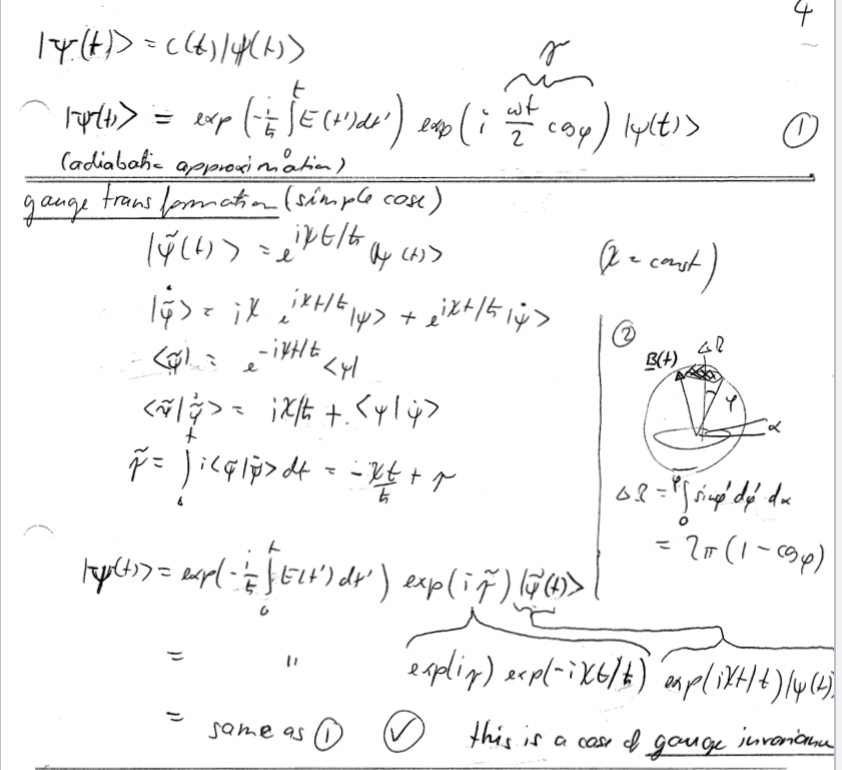 4
|ψ(t)> = c(t)|ψ(t)>
γ
|ψ(t)> = exp(-i/ħ ∫₀ᵗ E(t')dt') exp(i ωt/2 cosφ) |ψ(t)> ①
(adiabatic approximation)
gauge transformation (simple case)
|ψ̃(t)> = e^{iχt/ħ} |ψ(t)> (χ = const)
|ψ̃̇> = iχ e^{iχt/ħ}|ψ> + e^{iχt/ħ}|ψ̇>
<ψ̃| = e^{-iχt/ħ} <ψ|
<ψ̃|ψ̃̇> = iχ/ħ + <ψ|ψ̇>
γ̃ = ∫₀ᵗ i<ψ̃|ψ̃̇> dt = -χt/ħ + γ
②
B(t) ΔΩ
φ
α
ΔΩ = ∫₀^φ sinφ' dφ' dα
= 2π(1 - cosφ)
|ψ(t)> = exp(-i/ħ ∫₀ᵗ E(t')dt') exp(iγ̃) |ψ̃(t)>
= " exp(iγ) exp(-iχt/ħ) exp(iχt/ħ)|ψ(t)
= same as ① ✓ this is a case of gauge invariance